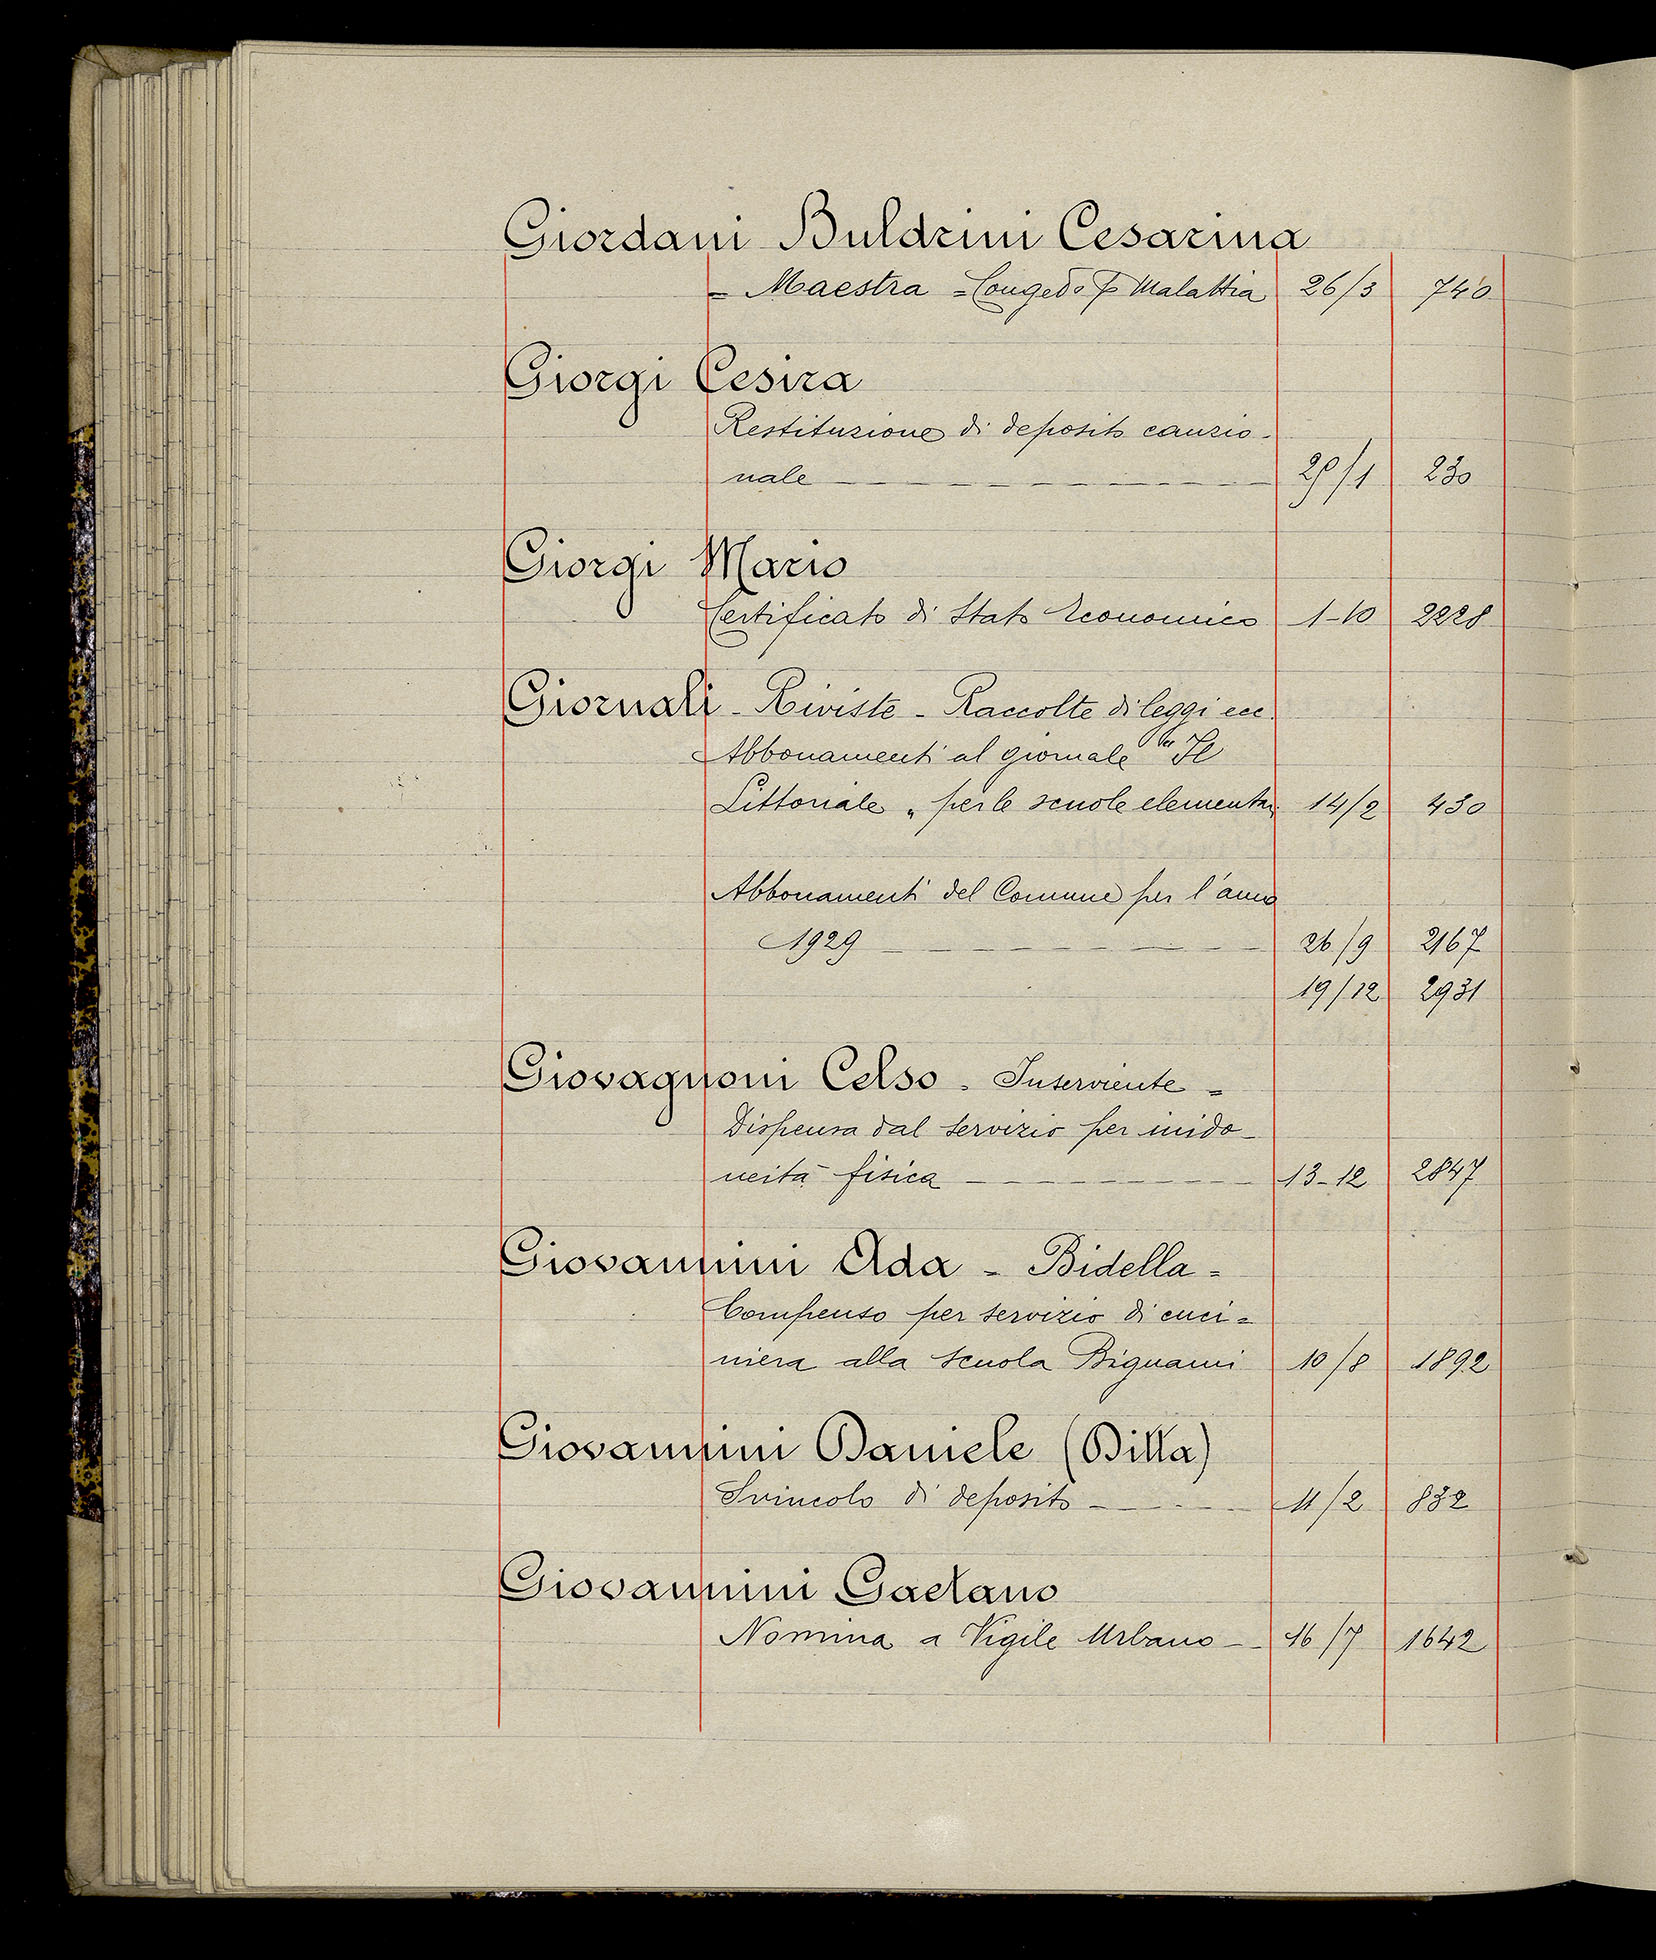 Giordani Buldrini Cesarina
= Maestra = Congedo p malattia 26/3 740
Giorgi Cesira
Restituzione di deposito cauzio-
nale 230
Giorgi Mario
Certificato di Stato Economico 1-10 2228
Giornali - Riviste - Raccolte di leggi ecc.
Abbonamenti al giornale "Il
Littoriale „ per le scuole elementari 14/2 430
Abbonamenti del Comune per l'anno
1929 26/9 2167
19/12 2931
Giovagnoni Celso - Inserviente =
Dispensa dal servizio per inido-
neità fisica 13-12 2847
Giovannini Ada - Bidella =
Compenso per servizio di cuci=
niera alla scuola Bignami 10/8 1892
Giovannini Daniele (Ditta)
Svincolo di deposito 11/2 832
Giovannini Gaetano
Nomina a Vigile Urbano 16/7 1642